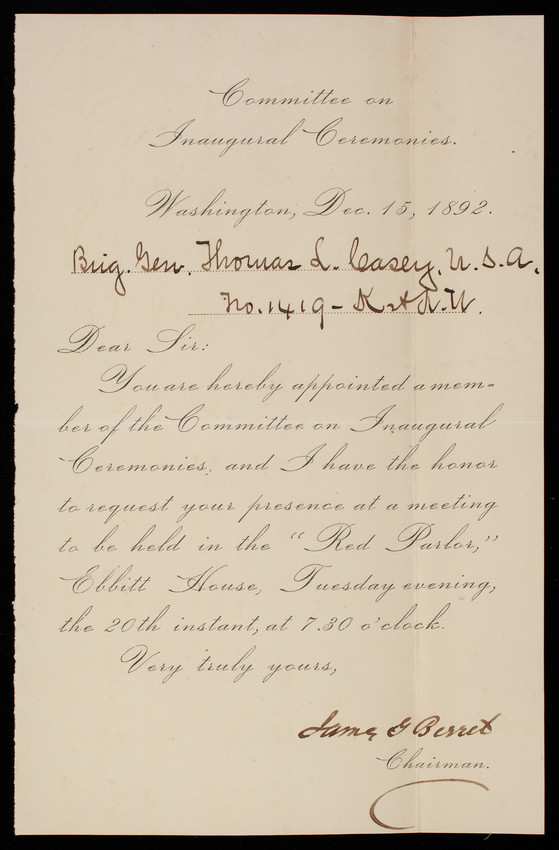 Committee on
Inaugural Ceremonies.
Washington, Dec. 15, 1892.
Brig. Gen. Thomas L. Casey, U. S. A.
No. 1419 - K St N. W.
Dear Sir:
You are hereby appointed a mem-
ber of the Committee on Inaugural
Ceremonies, and I have the honor
to request your presence at a meeting
to be held in the "Red Parlor,"
Ebbitt House, Tuesday evening,
the 20th instant, at 7.30 o'clock.
Very truly yours,
James G Berret
Chairman.